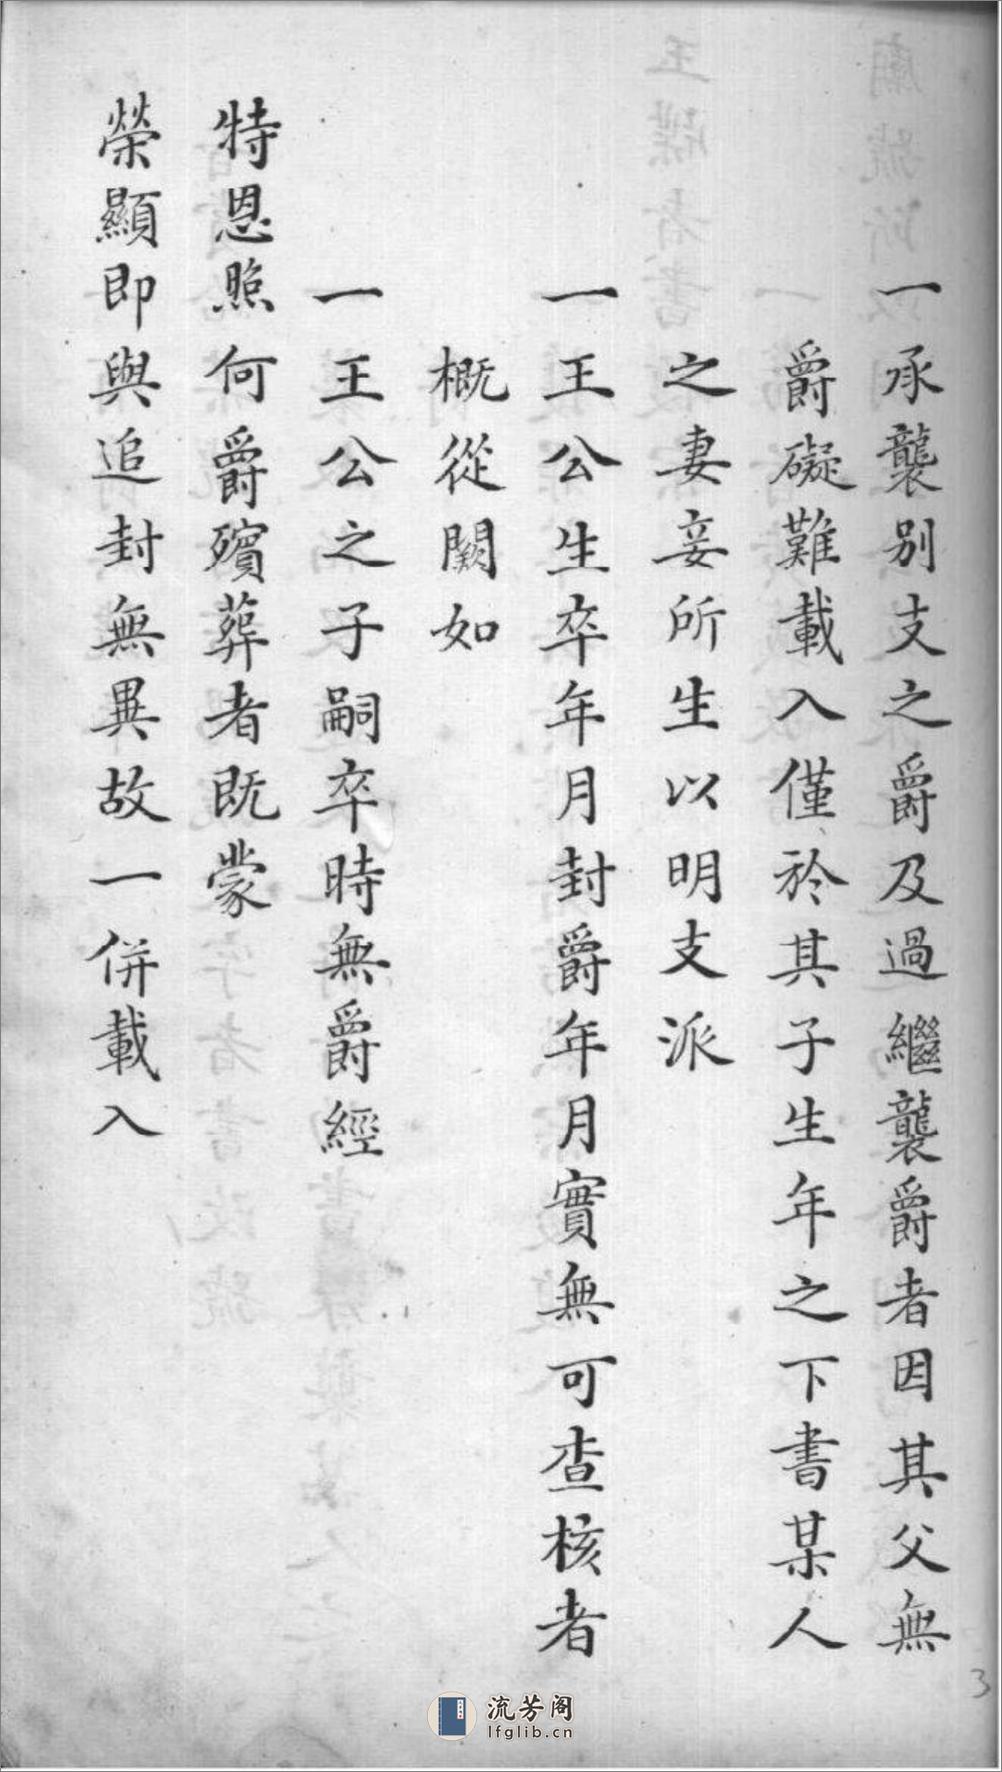 一承襲別支之爵及過繼襲爵者因其父無
爵礙難載入僅於其子生年之下書某人
之妻妾所生以明支派
一王公生卒年月封爵年月實無可查核者
概從闕如
一王公之子嗣卒時無爵經
特恩照何爵殯葬者既蒙
榮顯即與追封無異故一併載入
3
流芳阁
lfglib.cn